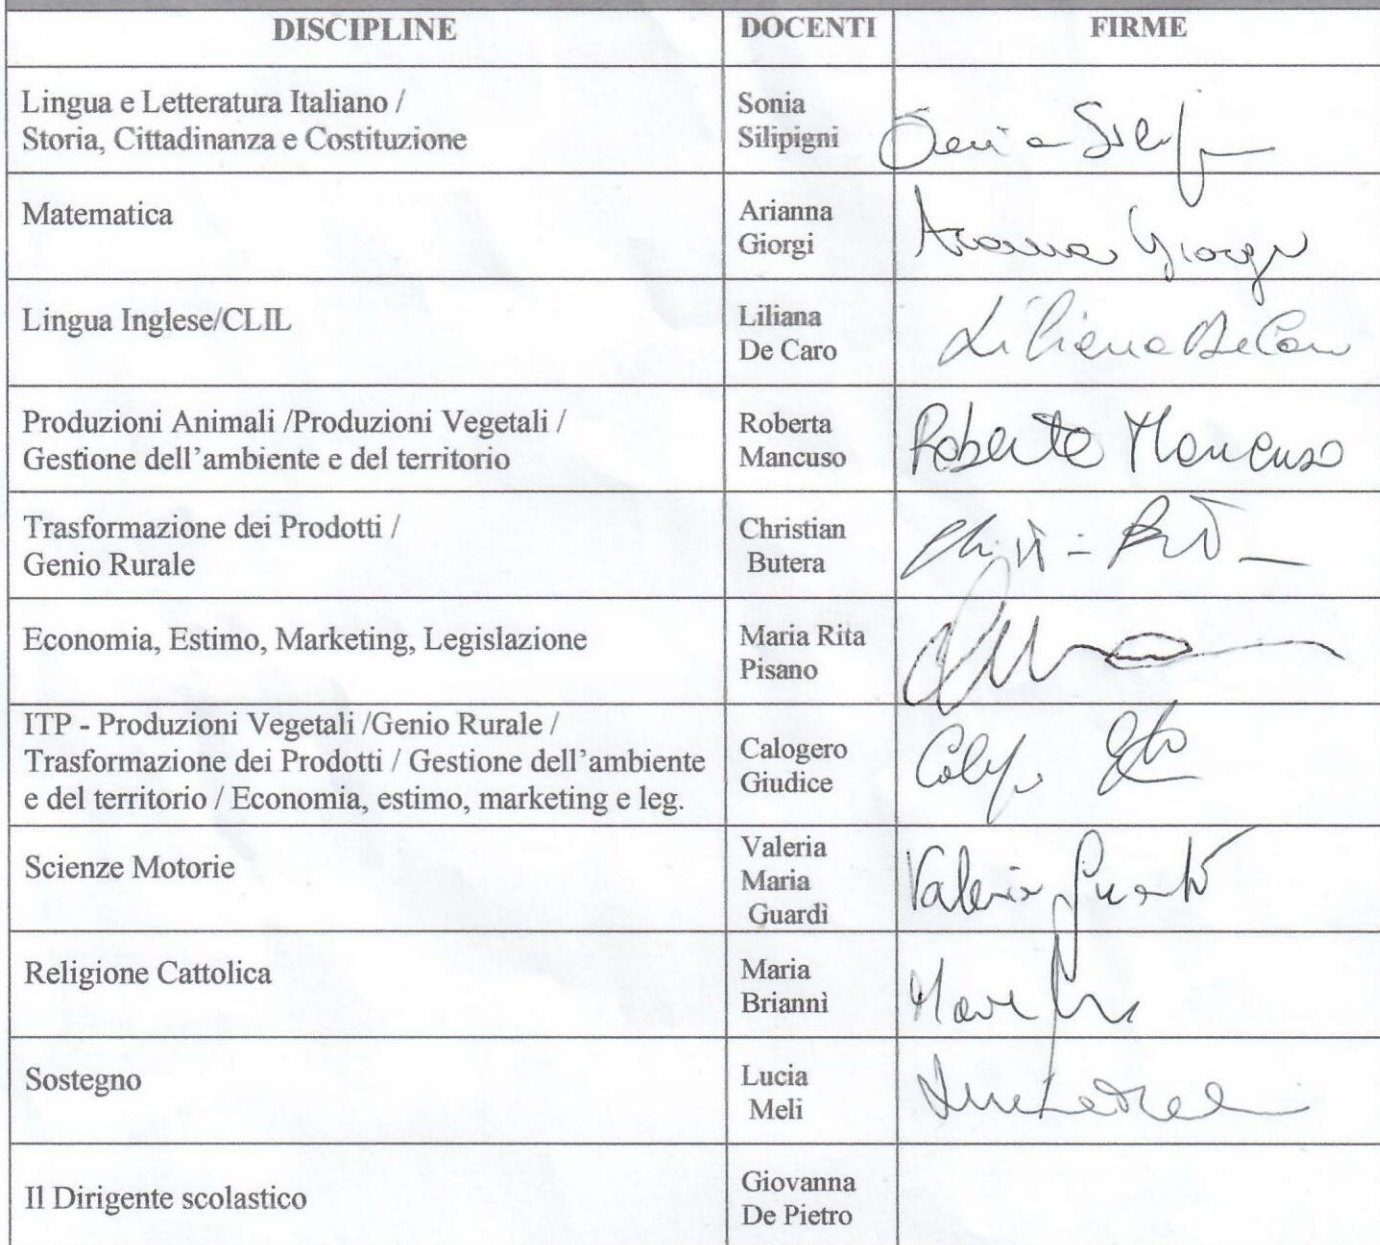 DISCIPLINE DOCENTI FIRME
Lingua e Letteratura Italiano /
Storia, Cittadinanza e Costituzione
Sonia
Silipigni
Matematica
Arianna
Giorgi
Arianna Giorgi
Lingua Inglese/CLIL
Liliana
De Caro
Liliana De Caro
Produzioni Animali /Produzioni Vegetali /
Gestione dell'ambiente e del territorio
Roberta
Mancuso
Roberta Mancuso
Trasformazione dei Prodotti /
Genio Rurale
Christian
Butera
Economia, Estimo, Marketing, Legislazione
Maria Rita
Pisano
ITP - Produzioni Vegetali /Genio Rurale /
Trasformazione dei Prodotti / Gestione dell'ambiente
e del territorio / Economia, estimo, marketing e leg.
Calogero
Giudice
Scienze Motorie
Valeria
Maria
Guardì
Valeria Guardì
Religione Cattolica
Maria
Briannì
Sostegno
Lucia
Meli
Il Dirigente scolastico
Giovanna
De Pietro